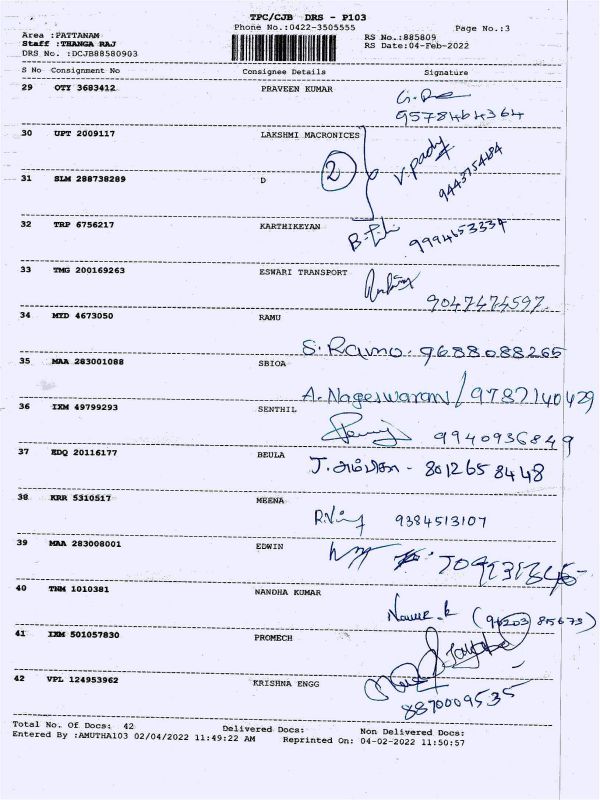 TPC/CJB DRS - P103
Phone No.:0422-3505555
Page No.:3
Area :PATTANAM
RS No.:885809
Staff :THANGA RAJ
RS Date:04-Feb-2022
DRS No. :DCJB88580903
S No Consignment No Consignee Details Signature
29 OTY 3683412 PRAVEEN KUMAR
9578464364
30 UPT 2009117 LAKSHMI MACRONICES
2 V. pady
31 SLM 288738289 D
32 TRP 6756217 KARTHIKEYAN
9994653334
33 TMG 200169263 ESWARI TRANSPORT
9047474597
34 MYD 4673050 RAMU
S. Ramo. 9688088265
35 MAA 283001088 SBIOA
A. Nageswaran / 9787140429
36 IXM 49799293 SENTHIL
9940936849
37 EDQ 20116177 BEULA
J. - 8012658448
38 KRR 5310517 MEENA
9384513107
39 MAA 283008001 EDWIN
40 TNM 1010381 NANDHA KUMAR
(96203 85673)
41 IXM 501057830 PROMECH
42 VPL 124953962 KRISHNA ENGG
8870009535
Total No. Of Docs: 42 Delivered Docs: Non Delivered Docs:
Entered By :AMUTHA103 02/04/2022 11:49:22 AM Reprinted On: 04-02-2022 11:50:57